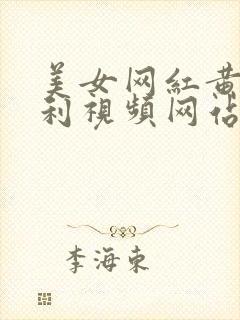 美女网紅黄
利視頻网佔
李海東